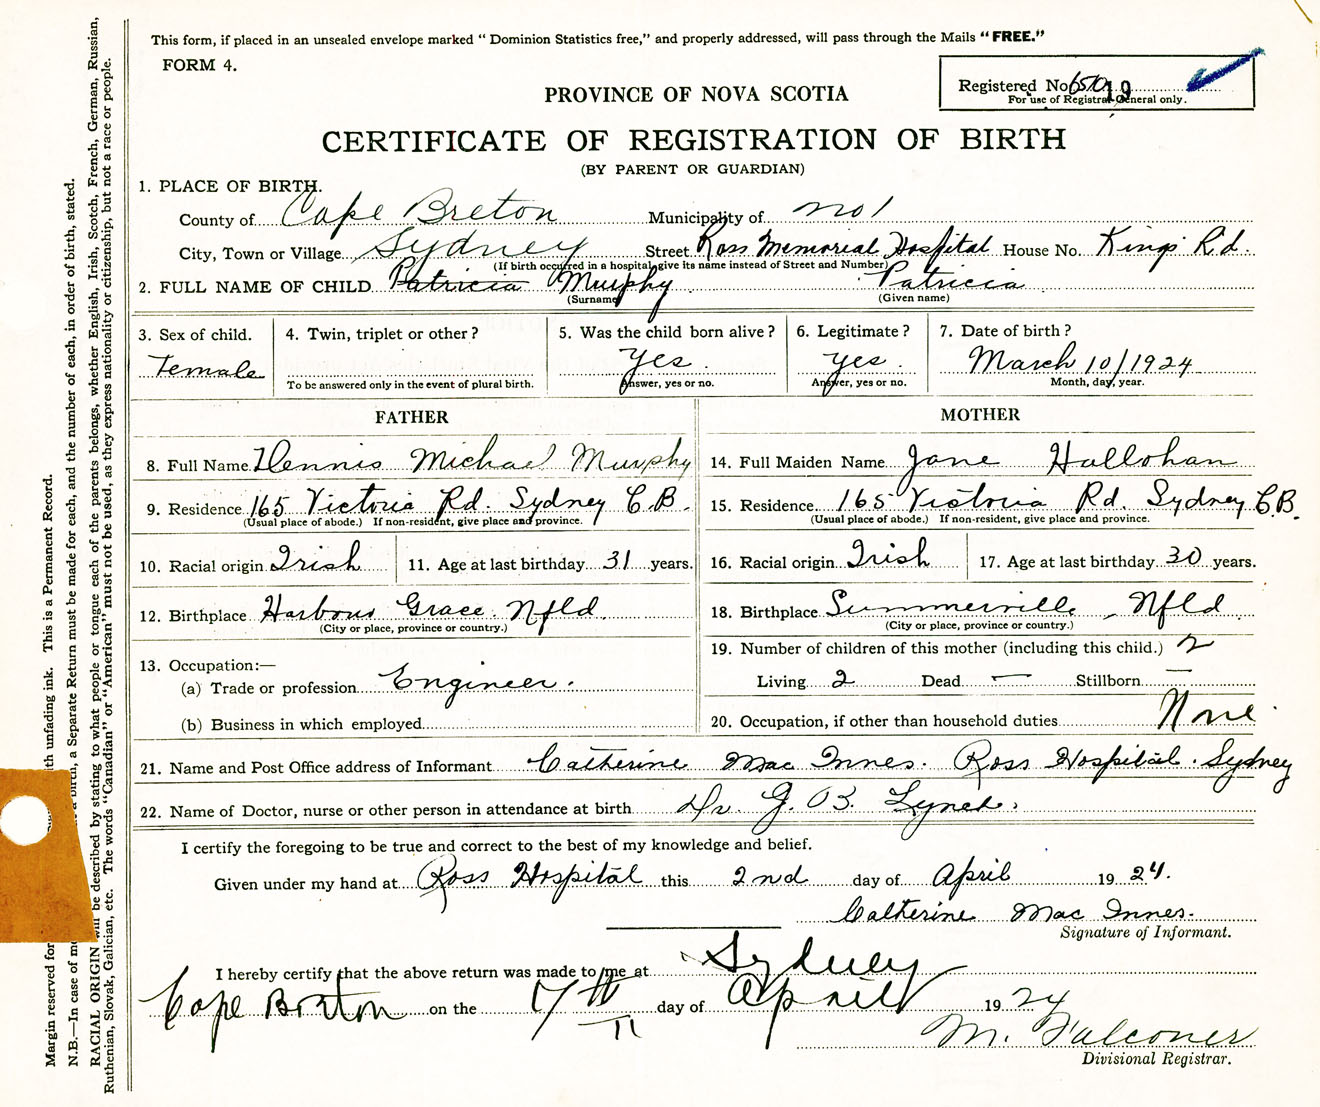 This form, if placed in an unsealed envelope marked “ Dominion Statistics free,” and properly addressed, will pass through the Mails “ FREE.”
FORM 4.
Registered No. 19
For use of Registrar General only.
PROVINCE OF NOVA SCOTIA
CERTIFICATE OF REGISTRATION OF BIRTH
(BY PARENT OR GUARDIAN)
1. PLACE OF BIRTH.
County of Cape Breton Municipality of No 1
City, Town or Village Sydney Street Ross Memorial Hospital House No. Kings Rd.
(If birth occurred in a hospital give its name instead of Street and Number)
2. FULL NAME OF CHILD Patricia Murphy Patricia
(Surname) (Given name)
3. Sex of child. 4. Twin, triplet or other ? 5. Was the child born alive ? 6. Legitimate ? 7. Date of birth ?
Female yes. yes. March 10/1924
To be answered only in the event of plural birth. Answer, yes or no. Answer, yes or no. Month, day, year.
FATHER MOTHER
8. Full Name Dennis Michael Murphy 14. Full Maiden Name Jane Hallohan
9. Residence 165 Victoria Rd. Sydney C.B. 15. Residence 165 Victoria Rd. Sydney C.B.
(Usual place of abode.) If non-resident, give place and province. (Usual place of abode.) If non-resident, give place and province.
10. Racial origin Irish 11. Age at last birthday 31 years. 16. Racial origin Irish 17. Age at last birthday 30 years.
12. Birthplace Harbour Grace. Nfld. 18. Birthplace Summerville, Nfld
(City or place, province or country.) (City or place, province or country.)
13. Occupation:— 19. Number of children of this mother (including this child.) 2
(a) Trade or profession Engineer. Living 2 Dead — Stillborn —
(b) Business in which employed 20. Occupation, if other than household duties None.
21. Name and Post Office address of Informant Catherine Mac Innes. Ross Hospital. Sydney
22. Name of Doctor, nurse or other person in attendance at birth Dr. G. B. Lynch.
I certify the foregoing to be true and correct to the best of my knowledge and belief.
Given under my hand at Ross Hospital this 2nd day of April 19 24.
Catherine Mac Innes.
Signature of Informant.
I hereby certify that the above return was made to me at Sydney
Cape Breton on the 17th day of April 19 24
M. Falconer
Divisional Registrar.
Margin reserved for
th unfading ink. This is a Permanent Record.
N.B.—In case of
a birth, a Separate Return must be made for each, and the number of each, in order of birth, stated.
RACIAL ORIGIN will be described by stating to what people or tongue each of the parents belongs, whether English, Irish, Scotch, French, German, Russian,
Ruthenian, Slovak, Galician, etc. The words “Canadian” or “American” must not be used, as they express nationality or citizenship, but not a race or people.